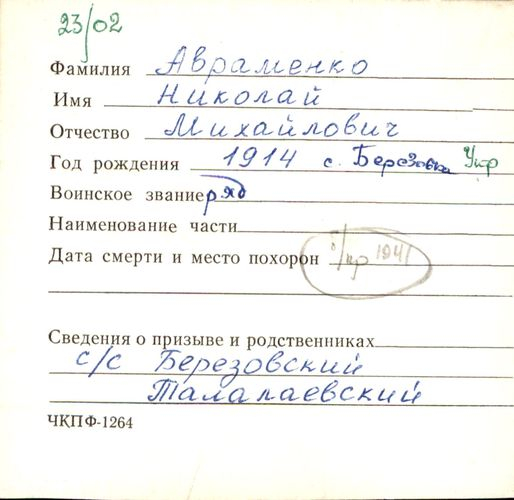 23/02
Фамилия Авраменко
Имя Николай
Отчество Михайлович
Год рождения 1914 с. Березовка Укр
Воинское звание ряд
Наименование части
Дата смерти и место похорон б/пр 1941
Сведения о призыве и родственниках
с/с Березовский
Талалаевский
ЧКПФ-1264